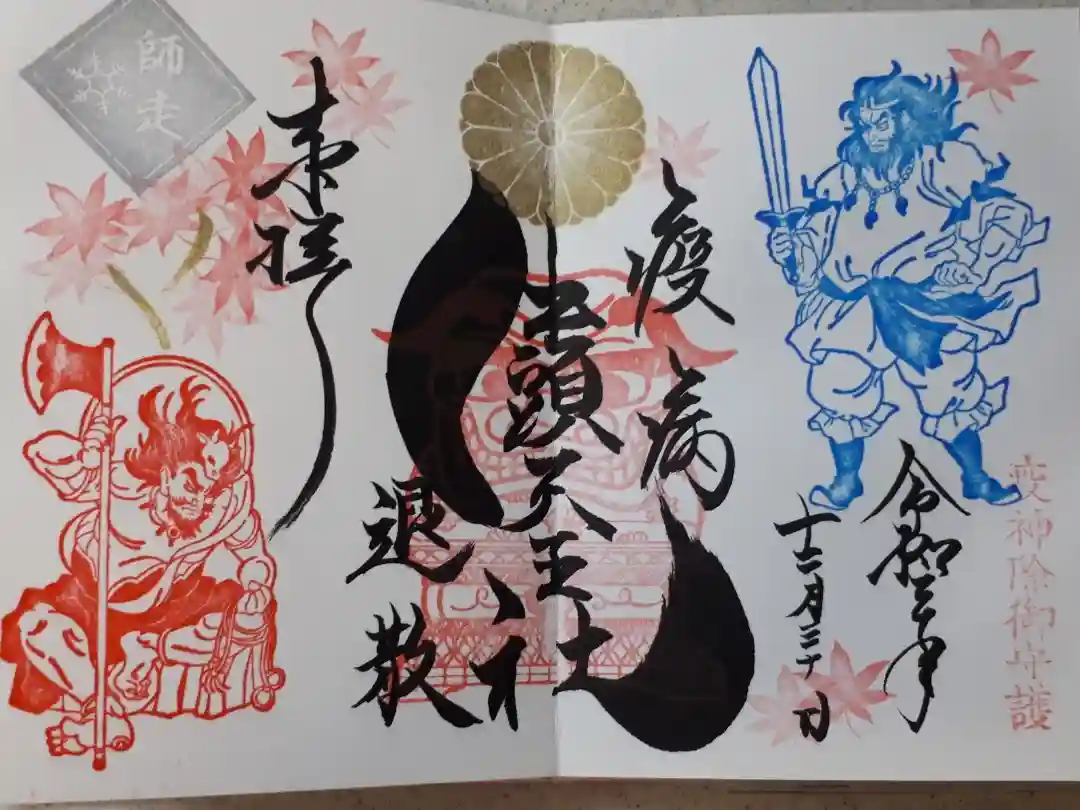 疫神除御守護
令和二年
十二月三十日
疫病
牛頭天王社
退散
師走